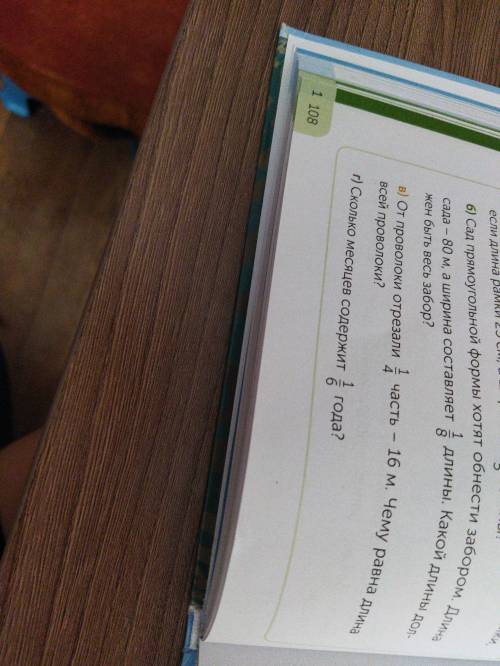 если длина рамки 25
б) Сад прямоугольной формы хотят обнести забором. Длина
сада – 80 м, а ширина составляет 1/8 длины. Какой длины дол-
жен быть весь забор?
в) От проволоки отрезали 1/4 часть – 16 м. Чему равна длина
всей проволоки?
г) Сколько месяцев содержит 1/6 года?
1 108